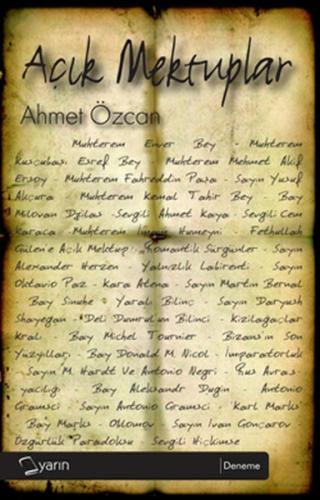 Açık Mektuplar
Ahmet Özcan
Muhterem Enver Bey - Muhterem
Kuşçubaşı Eşref Bey - Muhterem Mehmet Akif
Ersoy - Muhterem Fahreddin Paşa - Sayın Yusuf
Akçura - Muhterem Kemal Tahir Bey - Bay
Milovan Djilas -Sevgili Ahmet Kaya -Sevgili Cem
Karaca - Muhterem İmam Humeyni - Fethullah
Gülen'e Açık Mektup - Romantik Sürgünler - Sayın
Alexander Herzen - Yalnızlık Labirenti - Sayın
Oktavio Paz - Kara Atena - Sayın Martin Bernal
- Bay Sinuhe - Yaralı Bilinç - Sayın Daryush
Shayegan - Deli Dumrul'un Bilinci - Kızılağaçlar
Kralı - Bay Michel Tournier - Bizans'ın Son
Yüzyılları - Bay Donald M. Nicol - İmparatorluk
- Sayın M. Hardt Ve Antonio Negri - Rus Avras-
yacılığı - Bay Aleksandr Dugin - Antonio
Gramsci - Sayın Antonio Gramsci - Karl Marks
- Bay Marks - Oblomov - Sayın Ivan Gonçarov
Özgürlük Paradoksu - Sevgili Hiçkimse
yarın
Deneme